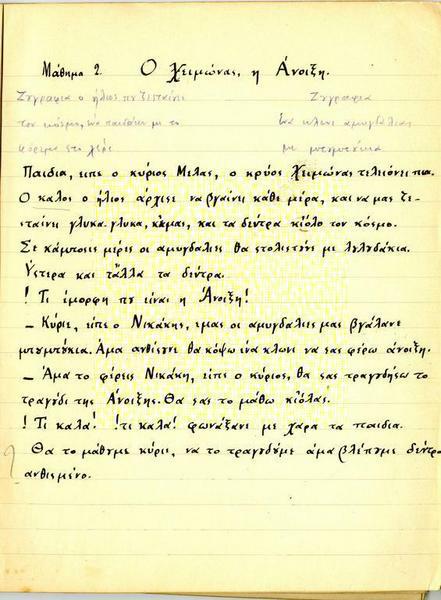 Μάθημα 2. Ο Χειμώνας, η Άνοιξη.
Ζυγραφια ο ήλιος πυ ζεσταίνι Ζυγραφια
τον κόσμο, ένα παιδάκι με το Ένα κλωνι αμυγδαλιας
με μπυμπύκια
Παιδια, ειπε ο κύριος Μελας, ο κρύος Χειμώνας τελειόνει πια.
Ο καλος ο ήλιος άρχισε να βγαίνει κάθε μέρα, και να μας ζε-
σταίνει γλυκα-γλυκα, κι εμας, και τα δέντρα κιόλο τον κόσμο.
Σε κάμποσες μέρες οι αμυγδαλιες θα στολιστύνε με λυλυδάκια.
Ύστερα και τάλλα τα δέντρα.
! Τι έμορφη πυ είναι η Άνοιξη!
– Κύριε, είπε ο Νικάκης, εμας οι αμυγδαλιες μας βγάλανε
μπυμπύκια. Άμα ανθίσυνε θα κόψω ένα κλωνι να σας φέρω άνοιξη.
– Άμα το φέρεις Νικάκη, είπε ο κύριος, θα σας τραγυδήσω το
τραγύδι της Άνοιξης. Θα σας το μάθω κιόλας.
! Τι καλα! !τι καλα! φωνάξανε με χαρα τα παιδια.
Θα το μάθυμε κύριε, να το τραγυδύμε άμα βλέπυμε δέντρο
ανθισμένο.